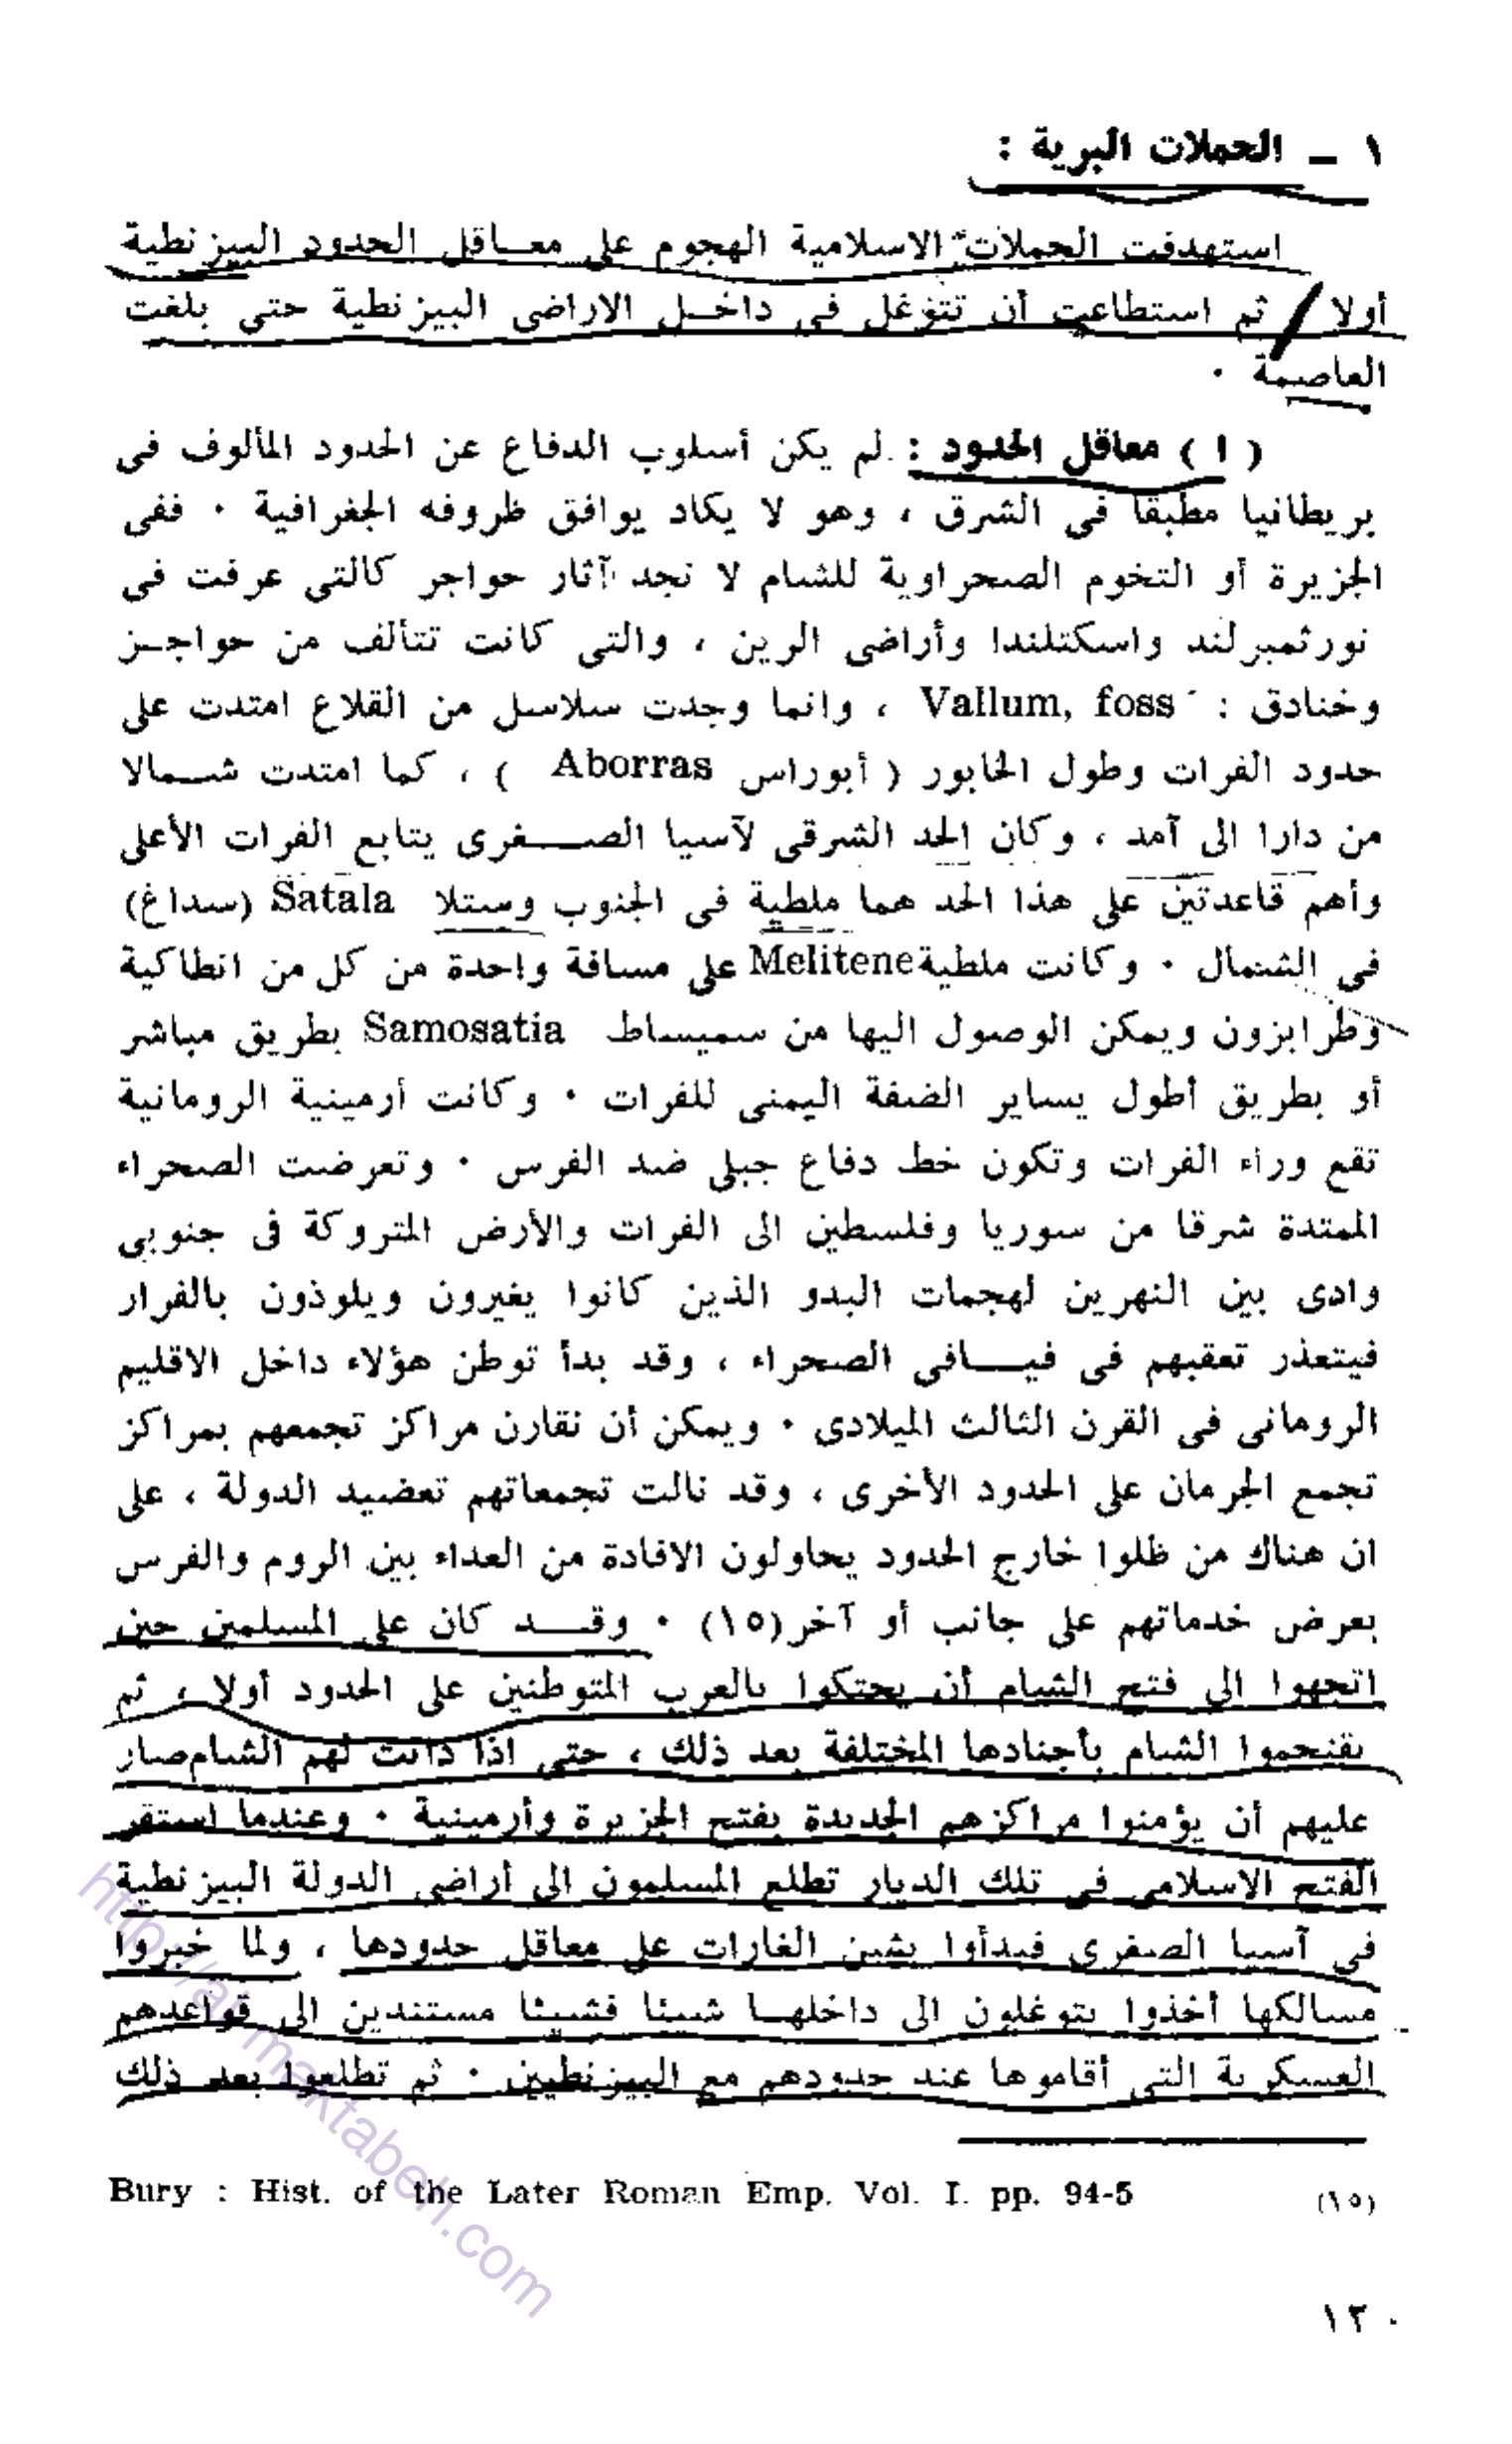 ١ ـ الحملات البرية :
استهدفت الحملات الاسلامية الهجوم على معــاقل الحدود البيزنطية
أولا / ثم استطاعت أن تتوغل فى داخــل الاراضى البيزنطية حتى بلغت
العاصمة ٠
( ا ) معاقل الحدود : لم يكن أسلوب الدفاع عن الحدود المألوف فى
بريطانيا مطبقا فى الشرق ، وهو لا يكاد يوافق ظروفه الجغرافية ٠ ففى
الجزيرة أو التخوم الصحراوية للشام لا نجد آثار حواجر كالتى عرفت فى
نورثمبرلند واسكتلندا وأراضى الرين ، والتى كانت تتألف من حواجـز
وخنادق : Vallum, foss ، وانما وجدت سلاسل من القلاع امتدت على
حدود الفرات وطول الخابور ( أبوراس Aborras ) ، كما امتدت شــمالا
من دارا الى آمد ، وكان الحد الشرقى لآسيا الصــــغرى يتابع الفرات الأعلى
وأهم قاعدتين على هذا الحد هما ملطية فى الجنوب وستلا Satala (سداغ)
فى الشمال ٠ وكانت ملطية Melitene على مسافة واحدة من كل من انطاكية
وطرابزون ويمكن الوصول اليها من سميساط Samosatia بطريق مباشر
أو بطريق أطول يساير الضفة اليمنى للفرات ٠ وكانت أرمينية الرومانية
تقع وراء الفرات وتكون خط دفاع جبلى ضد الفرس ٠ وتعرضت الصحراء
الممتدة شرقا من سوريا وفلسطين الى الفرات والأرض المتروكة فى جنوبى
وادى بين النهرين لهجمات البدو الذين كانوا يغيرون ويلوذون بالفرار
فيتعذر تعقبهم فى فيــــافى الصحراء ، وقد بدأ توطن هؤلاء داخل الاقليم
الرومانى فى القرن الثالث الميلادى ٠ ويمكن أن نقارن مراكز تجمعهم بمراكز
تجمع الجرمان على الحدود الأخرى ، وقد نالت تجمعاتهم تعضيد الدولة ، على
ان هناك من ظلوا خارج الحدود يحاولون الافادة من العداء بين الروم والفرس
بعرض خدماتهم على جانب أو آخر(١٥) ٠ وقــــد كان على المسلمين حين
اتجهوا الى فتح الشام أن يحتكوا بالعرب المتوطنين على الحدود أولا ، ثم
يقتحموا الشام بأجنادها المختلفة بعد ذلك ، حتى اذا دانت لهم الشام صار
عليهم أن يؤمنوا مراكزهم الجديدة بفتح الجزيرة وأرمينية ٠ وعندما استقر
الفتح الاسلامى فى تلك الديار تطلع المسلمون الى أراضى الدولة البيزنطية
فى آسيا الصغرى فبدأوا بشن الغارات على معاقل حدودها ، ولما خبروا
مسالكها أخذوا يتوغلون الى داخلهــا شيئا فشيئا مستندين الى قواعدهم
العسكرية التى أقاموها عند حدودهم مع البيزنطيين ٠ ثم تطلعوا بعد ذلك
(١٥) Bury : Hist. of the Later Roman Emp. Vol. I. pp. 94-5
١٢٠